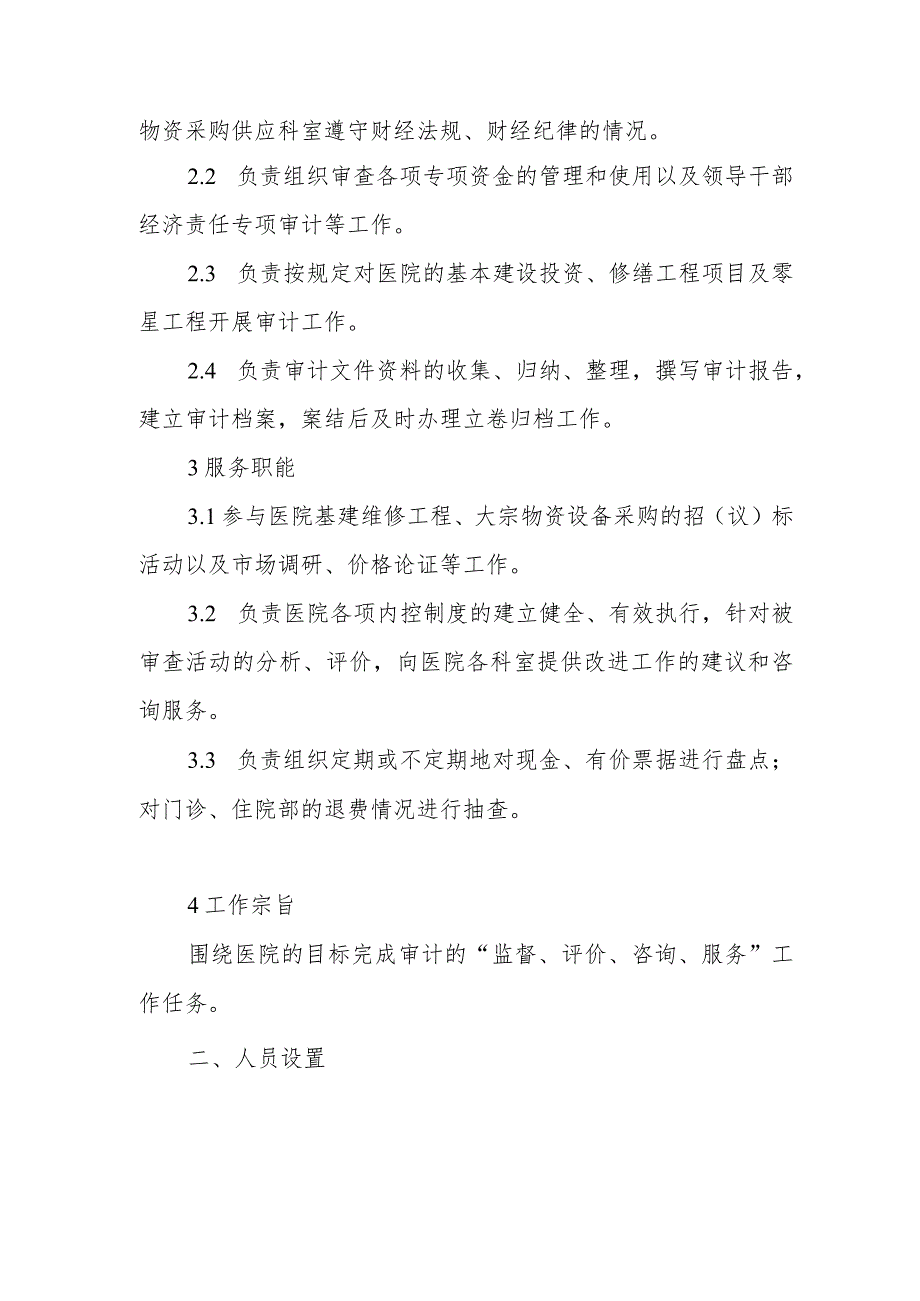 物资采购供应科室遵守财经法规、财经纪律的情况。
2.2 负责组织审查各项专项资金的管理和使用以及领导干部
经济责任专项审计等工作。
2.3 负责按规定对医院的基本建设投资、修缮工程项目及零
星工程开展审计工作。
2.4 负责审计文件资料的收集、归纳、整理，撰写审计报告，
建立审计档案，案结后及时办理立卷归档工作。
3 服务职能
3.1 参与医院基建维修工程、大宗物资设备采购的招（议）标
活动以及市场调研、价格论证等工作。
3.2 负责医院各项内控制度的建立健全、有效执行，针对被
审查活动的分析、评价，向医院各科室提供改进工作的建议和咨
询服务。
3.3 负责组织定期或不定期地对现金、有价票据进行盘点；
对门诊、住院部的退费情况进行抽查。
4 工作宗旨
围绕医院的目标完成审计的“监督、评价、咨询、服务”工
作任务。
二、人员设置